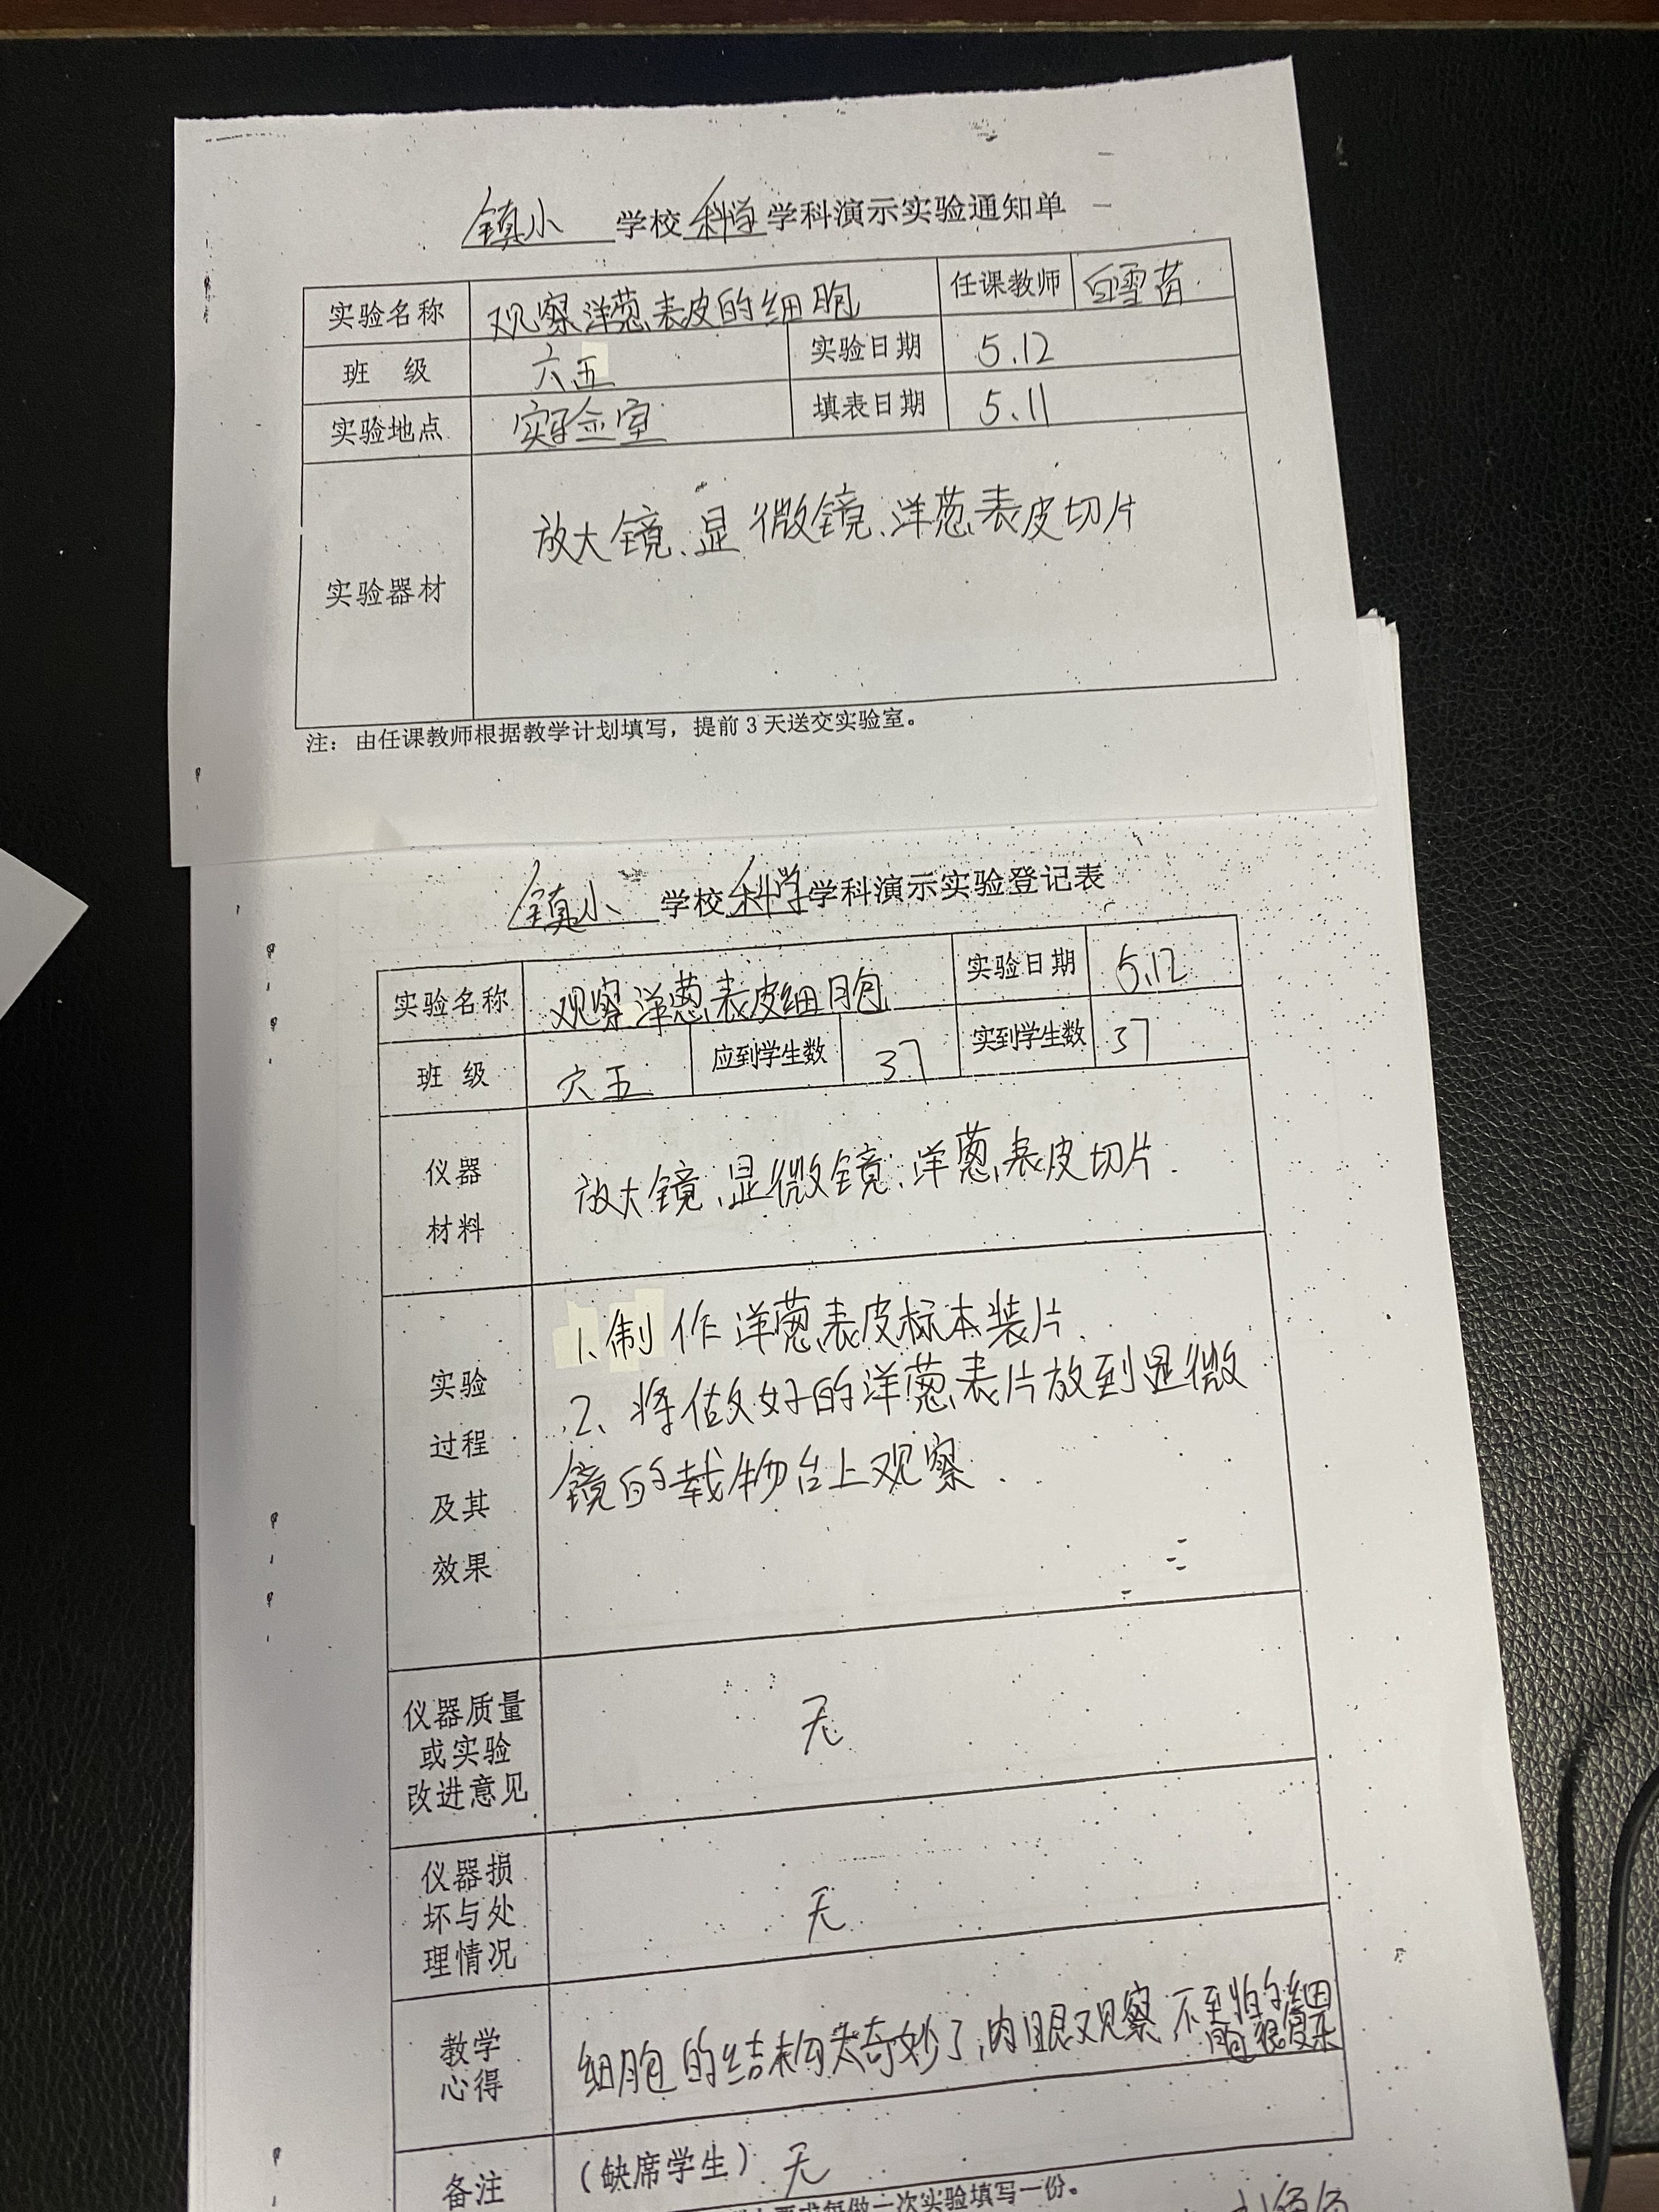 镇小 学校 科学 学科演示实验通知单
实验名称 观察洋葱表皮的细胞 任课教师 白雪
班 级 六五 实验日期 5.12
实验地点 实验室 填表日期 5.11
实验器材 放大镜、显微镜、洋葱表皮切片
注：由任课教师根据教学计划填写，提前3天送交实验室。
镇小 学校 科学 学科演示实验登记表
实验名称 观察洋葱表皮细胞 实验日期 5.12
班 级 六五 应到学生数 37 实到学生数 37
仪器
材料
放大镜、显微镜、洋葱表皮切片.
实验
过程
及其
效果
1、制作洋葱表皮标本装片.
2、将做好的洋葱表片放到显微
镜的载物台上观察.
仪器质量
或实验
改进意见
无
仪器损
坏与处
理情况
无
教学
心得
细胞的结构太奇妙了,肉眼观察不到的细
胞很复杂
备注 (缺席学生) 无
要求每做一次实验填写一份。